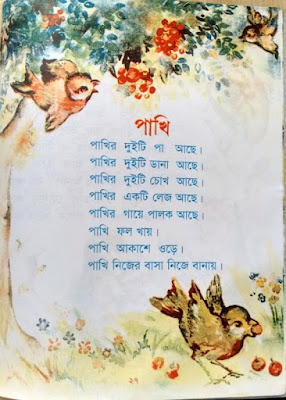 পাখি
পাখির দুইটি পা আছে।
পাখির দুইটি ডানা আছে।
পাখির দুইটি চোখ আছে।
পাখির একটি লেজ আছে।
পাখির গায়ে পালক আছে।
পাখি ফল খায়।
পাখি আকাশে ওড়ে।
পাখি নিজের বাসা নিজে বানায়।
২৭